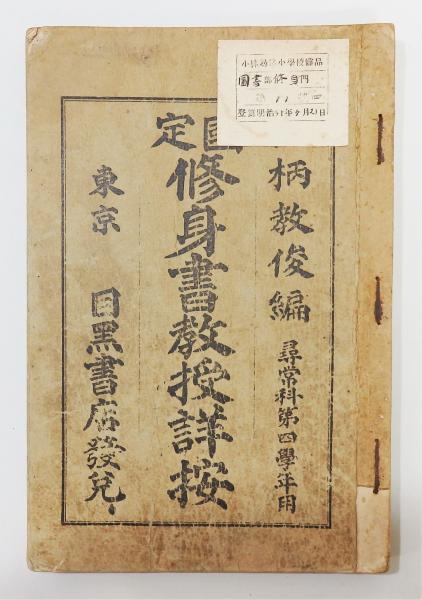 小學校備品
圖書部修身門
登錄明治卅年月日
柄教俊編
尋常科第四學年用
國定
修身書教授詳按
東京
目黑書店發兌